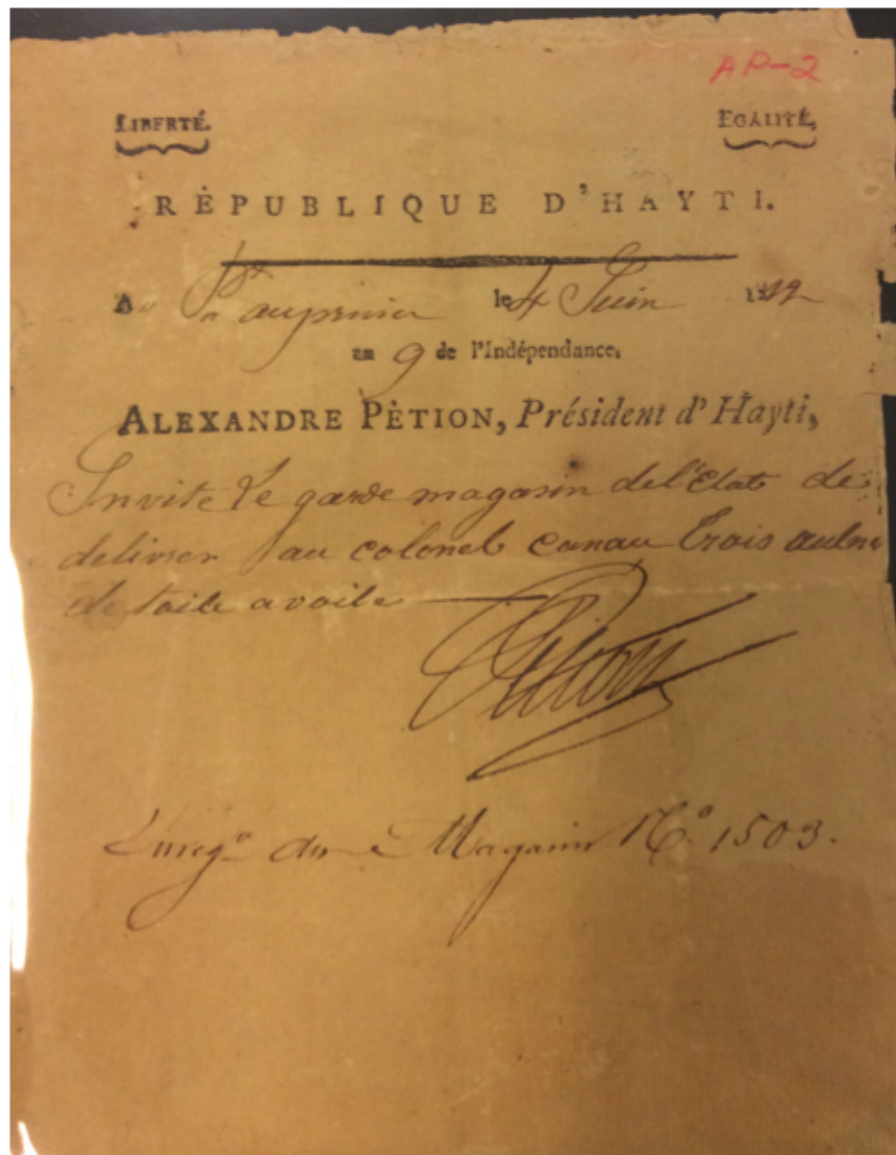 AP-2
LIBERTÉ. EGALITÉ,
RÉPUBLIQUE D'HAYTI.
A Pt auprince le 4 Juin 1812
an 9 de l'Indépendance,
ALEXANDRE PÈTION, Président d'Hayti,
Invite le garde magasin de l'Etat de
delivrer au colonel canau trois aulne
de toile a voile
Pétion
Magasin N.º 1503.